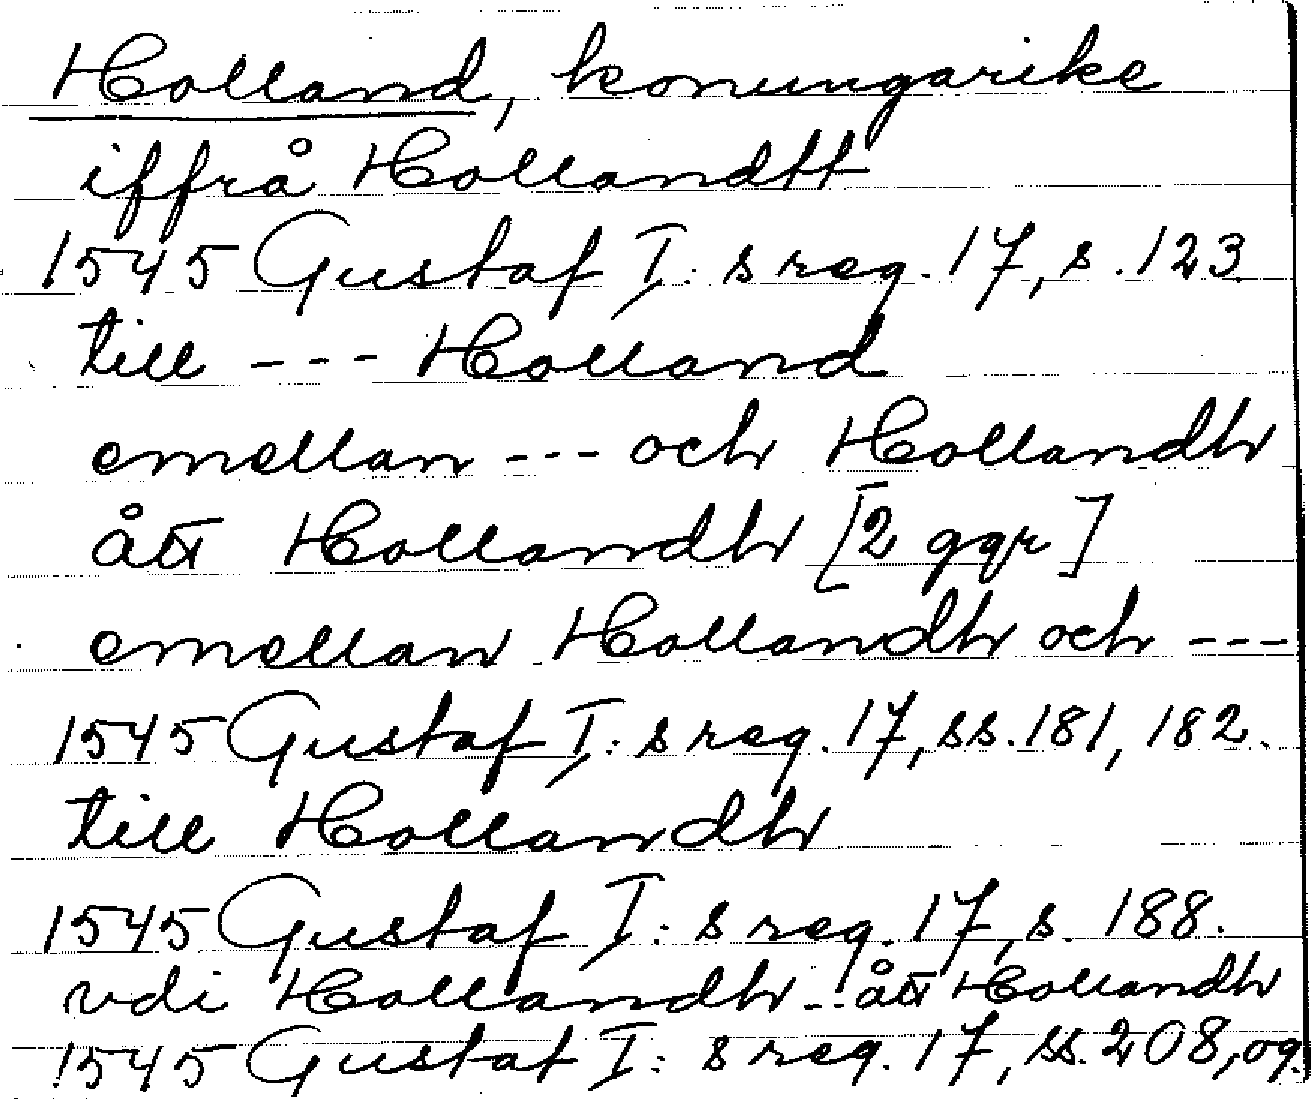 Holland, konungarike
iffrå Hollandtt
1545 Gustaf I:s reg. 17, s. 123
till --- Holland
emellan --- och Hollandh
ått Hollandh [2 ggr]
emellan Hollandh och ---
1545 Gustaf I:s reg. 17, ss. 181, 182.
till Hollandh
1545 Gustaf I:s reg. 17, s. 188.
vdi Hollandh -- ått Hollandh
1545 Gustaf I:s reg. 17, ss. 208, 09.